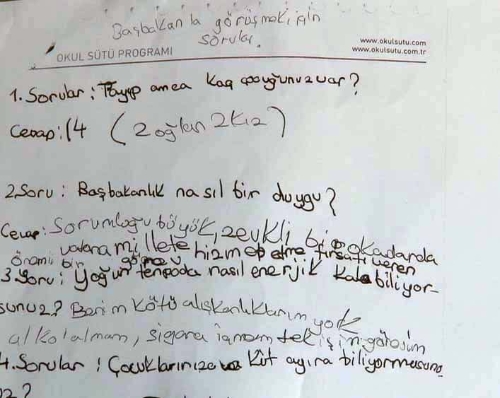 Başbakanla görüşmek için
sorular.
OKUL SÜTÜ PROGRAMI
www.okulsutu.com
www.okulsutu.com.tr
1. Sorular: Tayyip amca kaç çocuğunuz var?
Cevap: 4 (2 oğlan 2 kız)
2. Soru: Başbakanlık nasıl bir duygu?
Cevap: Sorumloğu büyük, zevkli bir okadarda
vatana millete hizmet etme fırsatı veren
önemi bir görev
3. Soru: Yoğun tempoda nasıl enerjik kalabiliyor-
sunuz? Benim kötü alışkanlıklarım yok
alkol almam, sigara içmem tek işin
4. Sorular: Çocuklarınıza vakit ayıra biliyormusunu